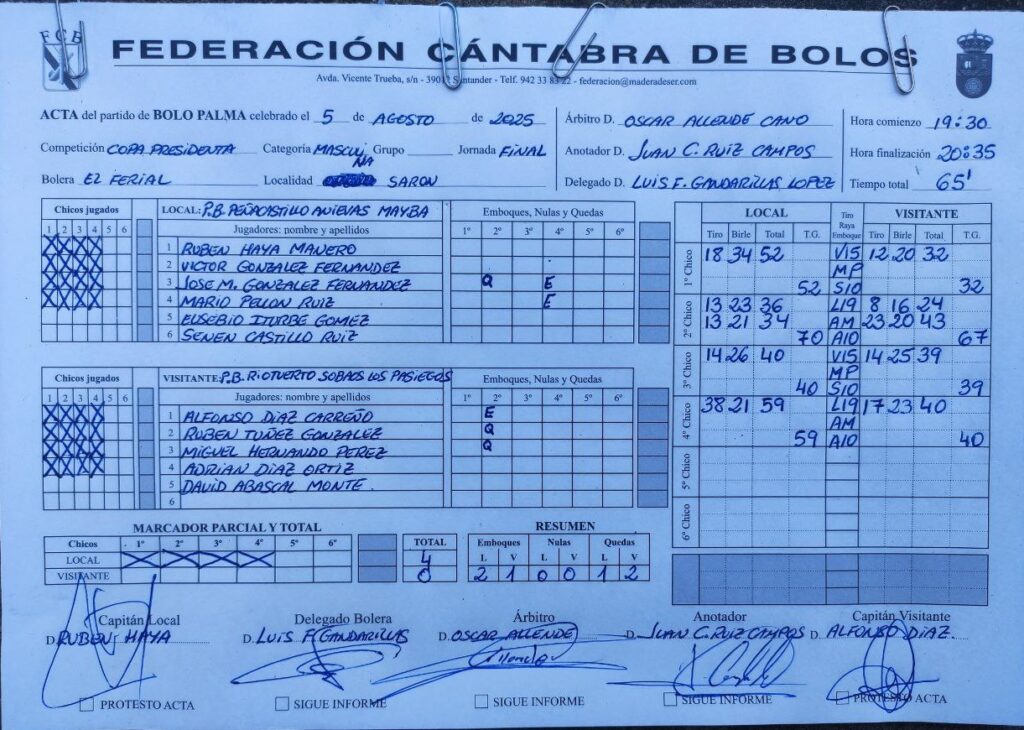 FCB
FEDERACIÓN CÁNTABRA DE BOLOS
Avda. Vicente Trueba, s/n - 39012 Santander - Telf. 942 33 83 22 - federacion@maderadeser.com
ACTA del partido de BOLO PALMA celebrado el 5 de AGOSTO de 2025
Competición COPA PRESIDENTA Categoría MASCULINA Grupo Jornada FINAL
Bolera EL FERIAL Localidad SARON
Árbitro D. OSCAR ALLENDE CANO
Anotador D. JUAN C. RUIZ CAMPOS
Delegado D. LUIS F. GANDARILLAS LOPEZ
Hora comienzo 19:30
Hora finalización 20:35
Tiempo total 65'
Chicos jugados LOCAL: P.B. PEÑACASTILLO ANIEVAS MAYBA Emboques, Nulas y Quedas
1 2 3 4 5 6 Jugadores: nombre y apellidos 1º 2º 3º 4º 5º 6º
X X X X 1 RUBEN HAYA MANERO
X X X X 2 VICTOR GONZALEZ FERNANDEZ
X X X X 3 JOSE M. GONZALEZ FERNANDEZ Q E
X X X X 4 MARIO PELLON RUIZ E
5 EUSEBIO ITURBE GOMEZ
6 SENEN CASTILLO RUIZ
Chicos jugados VISITANTE: P.B. RIOTUERTO SOBAOS LOS PASIEGOS Emboques, Nulas y Quedas
1 2 3 4 5 6 Jugadores: nombre y apellidos 1º 2º 3º 4º 5º 6º
X X X X 1 ALFONSO DIAZ CARREÑO E
X X X X 2 RUBEN TUÑEZ GONZALEZ Q
X X X X 3 MIGUEL HERNANDO PEREZ Q
X X X X 4 ADRIAN DIAZ ORTIZ
5 DAVID ABASCAL MONTE.
6
LOCAL Tiro Raya Emboque VISITANTE
Tiro Birle Total T.G. Tiro Birle Total T.G.
1º Chico 18 34 52 V15 12 20 32
MP
52 S10 32
2º Chico 13 23 36 L19 8 16 24
13 21 34 AM 23 20 43
70 A10 67
3º Chico 14 26 40 V15 14 25 39
MP
40 S10 39
4º Chico 38 21 59 L19 17 23 40
AM
59 A10 40
5º Chico
6º Chico
MARCADOR PARCIAL Y TOTAL
Chicos 1º 2º 3º 4º 5º 6º TOTAL
LOCAL X X X X 4
VISITANTE 0
RESUMEN
Emboques Nulas Quedas
L V L V L V
2 1 0 0 1 2
Capitán Local Delegado Bolera Árbitro Anotador Capitán Visitante
D. RUBEN HAYA D. LUIS F. GANDARILLAS D. OSCAR ALLENDE D. JUAN C. RUIZ CAMPOS D. ALFONSO DIAZ.
PROTESTO ACTA SIGUE INFORME SIGUE INFORME SIGUE INFORME PROTESTO ACTA